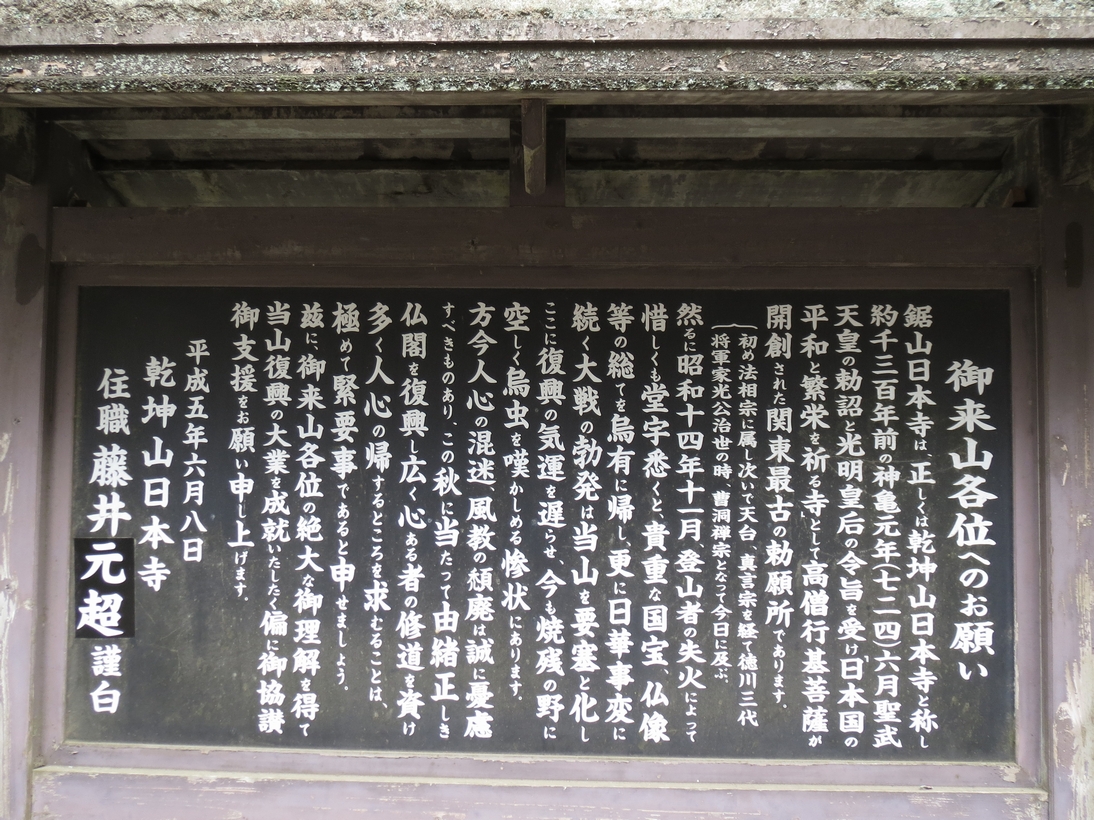 御来山各位へのお願い
鋸山日本寺は、正しくは乾坤山日本寺と称し
約千三百年前の神亀元年(七二四)六月聖武
天皇の勅詔と光明皇后の令旨を受け日本国の
平和と繁栄を祈る寺として高僧行基菩薩が
開創された関東最古の勅願所であります。
(初め法相宗に属し次いで天台、真言宗を経て徳川三代
将軍家光公治世の時、曹洞禅宗となって今日に及ぶ、
然るに昭和十四年十一月登山者の失火によって
惜しくも堂宇悉くと、貴重な国宝、仏像
等の総てを烏有に帰し、更に日華事変に
続く大戦の勃発は当山を要塞と化し
ここに復興の気運を遅らせ、今も焼残の野に
空しく烏虫を嘆かしめる惨状にあります。
方今人心の混迷、風教の頽廃は誠に憂慮
すべきものあり、この秋に当たって由緒正しき
仏閣を復興し広く心ある者の修道を資け
多く人心の帰するところを求むることは、
極めて緊要事であると申せましょう。
玆に、御来山各位の絶大な御理解を得て
当山復興の大業を成就いたしたく偏に御協讃
御支援をお願い申し上げます。
平成五年六月八日
乾坤山日本寺
住職藤井元超謹白